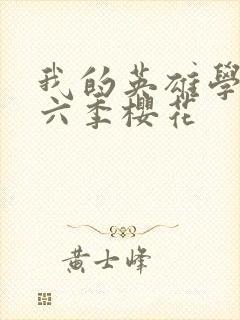 我的英雄學
六季櫻花
黃士峰